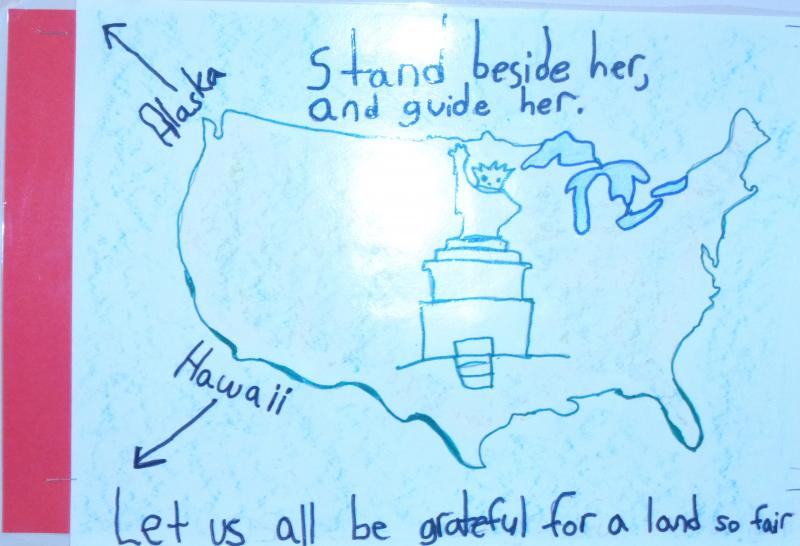 Alaska
Stand beside her,
and guide her.
Hawaii
Let us all be grateful for a land so fair